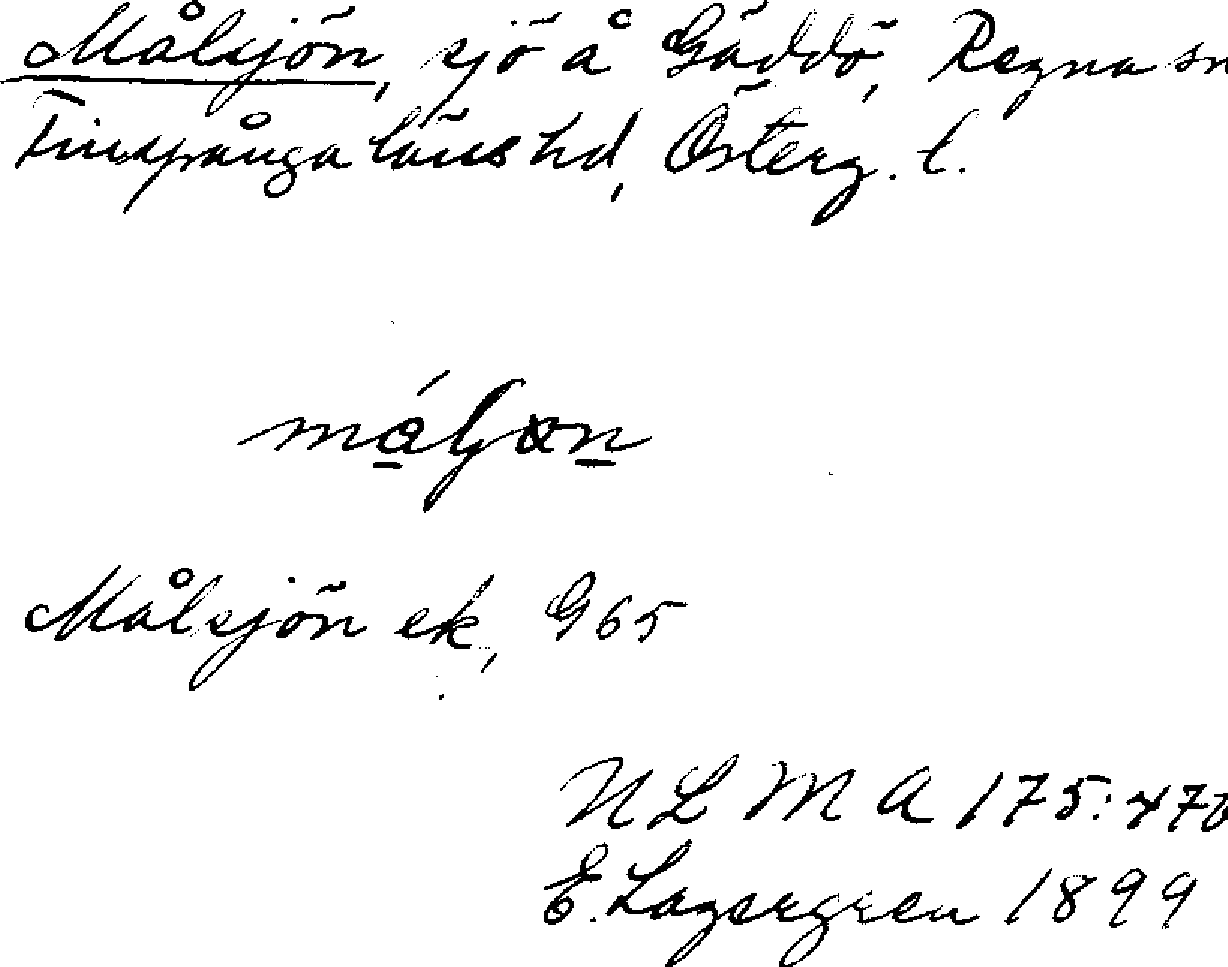 Målsjön, sjö å Gäddö, Regna sn
Finspånga läns hd, Österg. l.
Målsjön ek, G65
NLMA 175:
E. Lagergren 1899